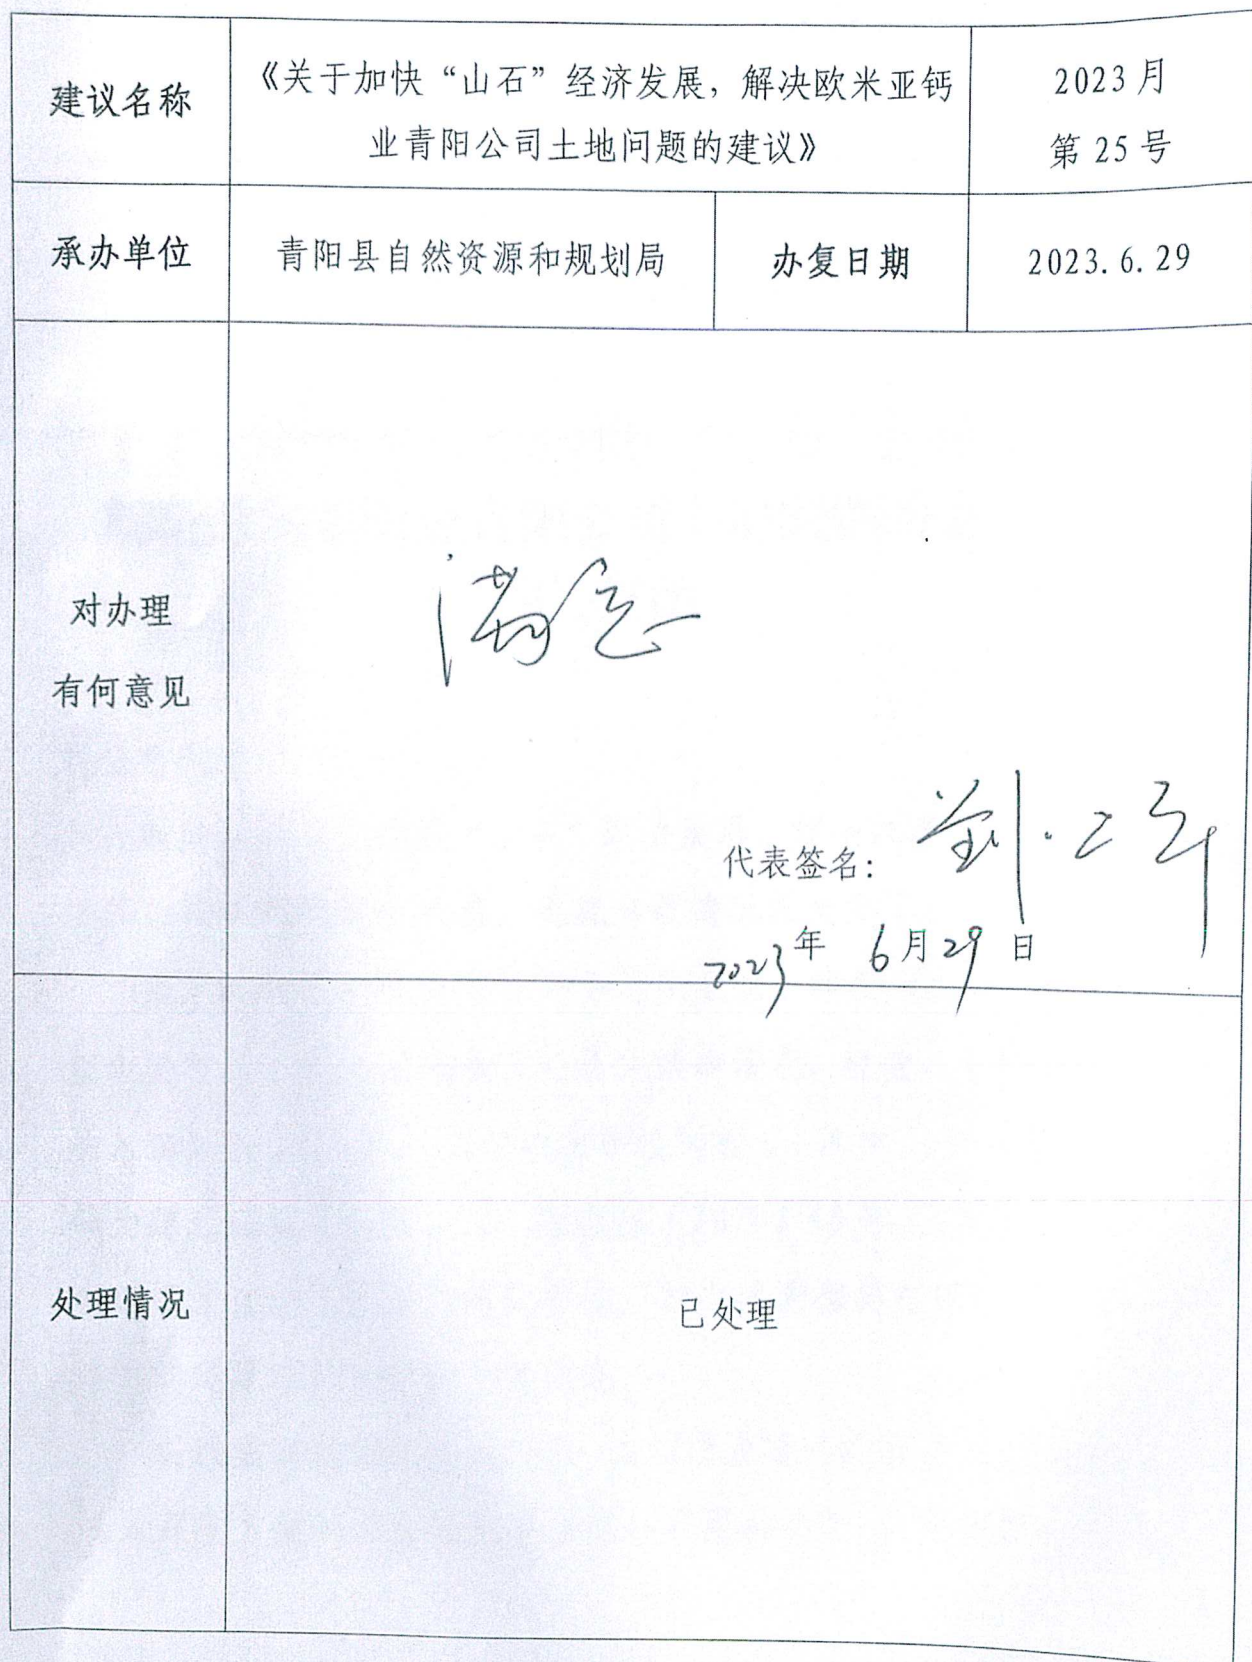 建议名称
《关于加快“山石”经济发展，解决欧米亚钙
业青阳公司土地问题的建议》
2023月
第 25 号
承办单位
青阳县自然资源和规划局
办复日期
2023.6.29
对办理
有何意见
满意
代表签名：刘
2023年 6月29日
处理情况
已处理